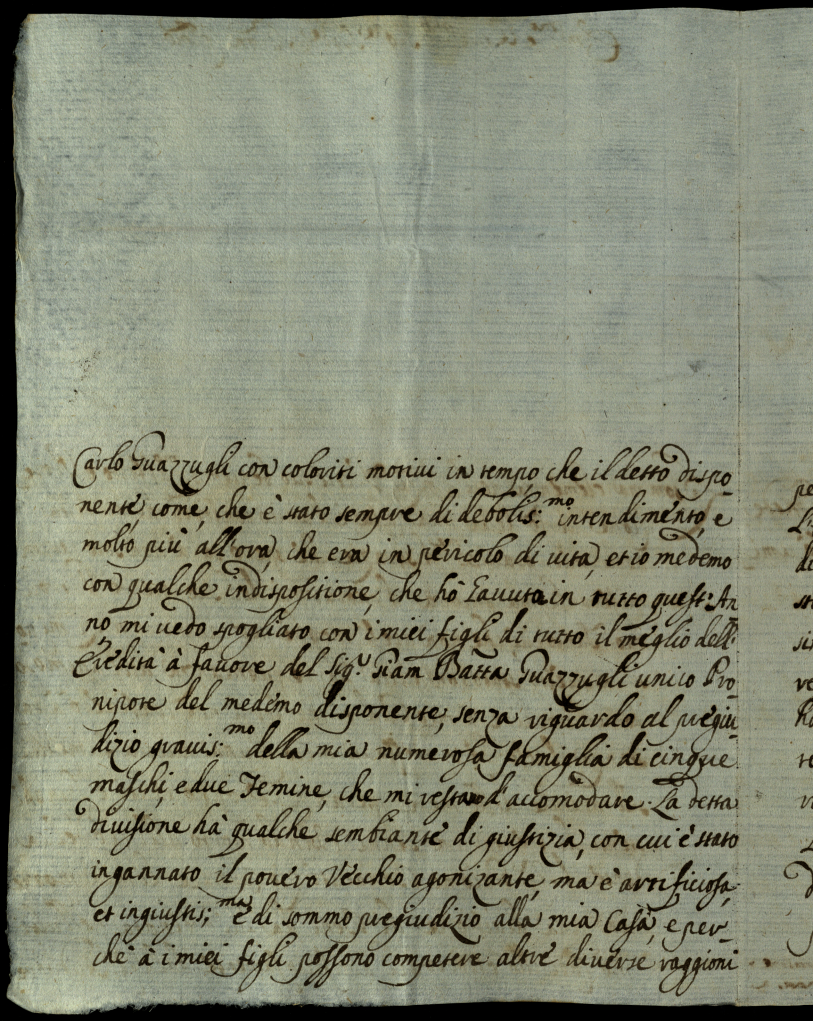 Carlo Guazzugli con coloriti motivi in tempo che il detto dispo-
nente, come, che è stato sempre di debolis:mo intendimento, e
molto più all'ora, che era in pericolo di vita, et io medemo
con qualche indispositione, che hò havuta in tutto quest: An
no, mi vedo spogliato con i miei figli di tutto il meglio dell'
Eredità à favore del Sig.r Giam Batta Guazzugli unico Pro-
nipote del medemo disponente, senza riguardo al pregiu-
dizio gravis:mo della mia numerosa famiglia di cinque
maschi, e due Femine, che mi resta d'accomodare. La detta
divisione hà qualche sembiante di giustizia, con cui è stato
ingannato il povero Vecchio agonizante, ma è artificiosa,
et ingiustis:ma, e di sommo pregiudizio alla mia Casa, e per-
che à i miei figli possono competere altre diverse raggioni